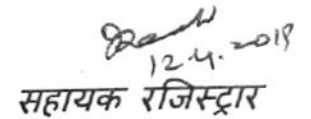 12.4.2019
सहायक रजिस्ट्रार